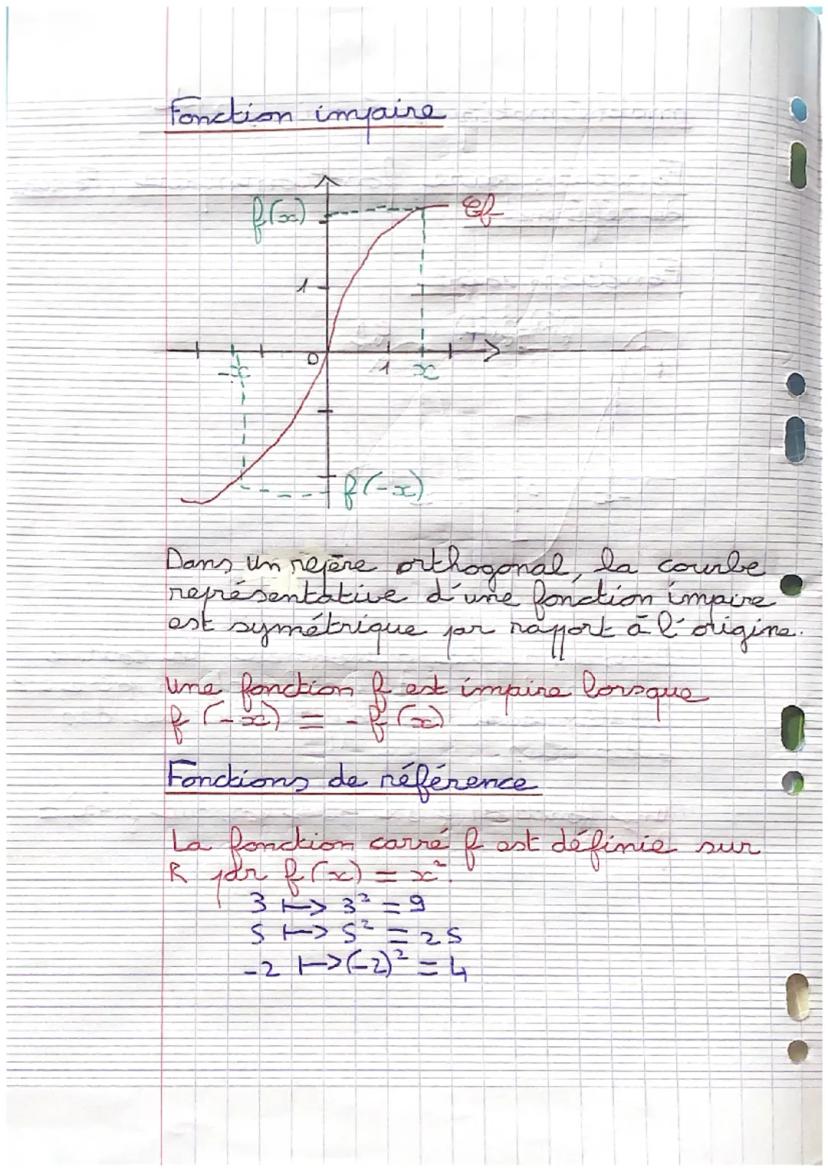 Fonction impaire
f(x)
Cf
1
-x
0
1
x
f(-x)
Dans un repère orthogonal, la courbe
représentative d'une fonction impaire
est symétrique par rapport à l'origine.
Une fonction f est impaire lorsque
f(-x) = -f(x)
Fonctions de référence
La fonction carré f est définie sur
R par f(x) = x².
3 ↦ 3² = 9
5 ↦ 5² = 25
-2 ↦ (-2)² = 4